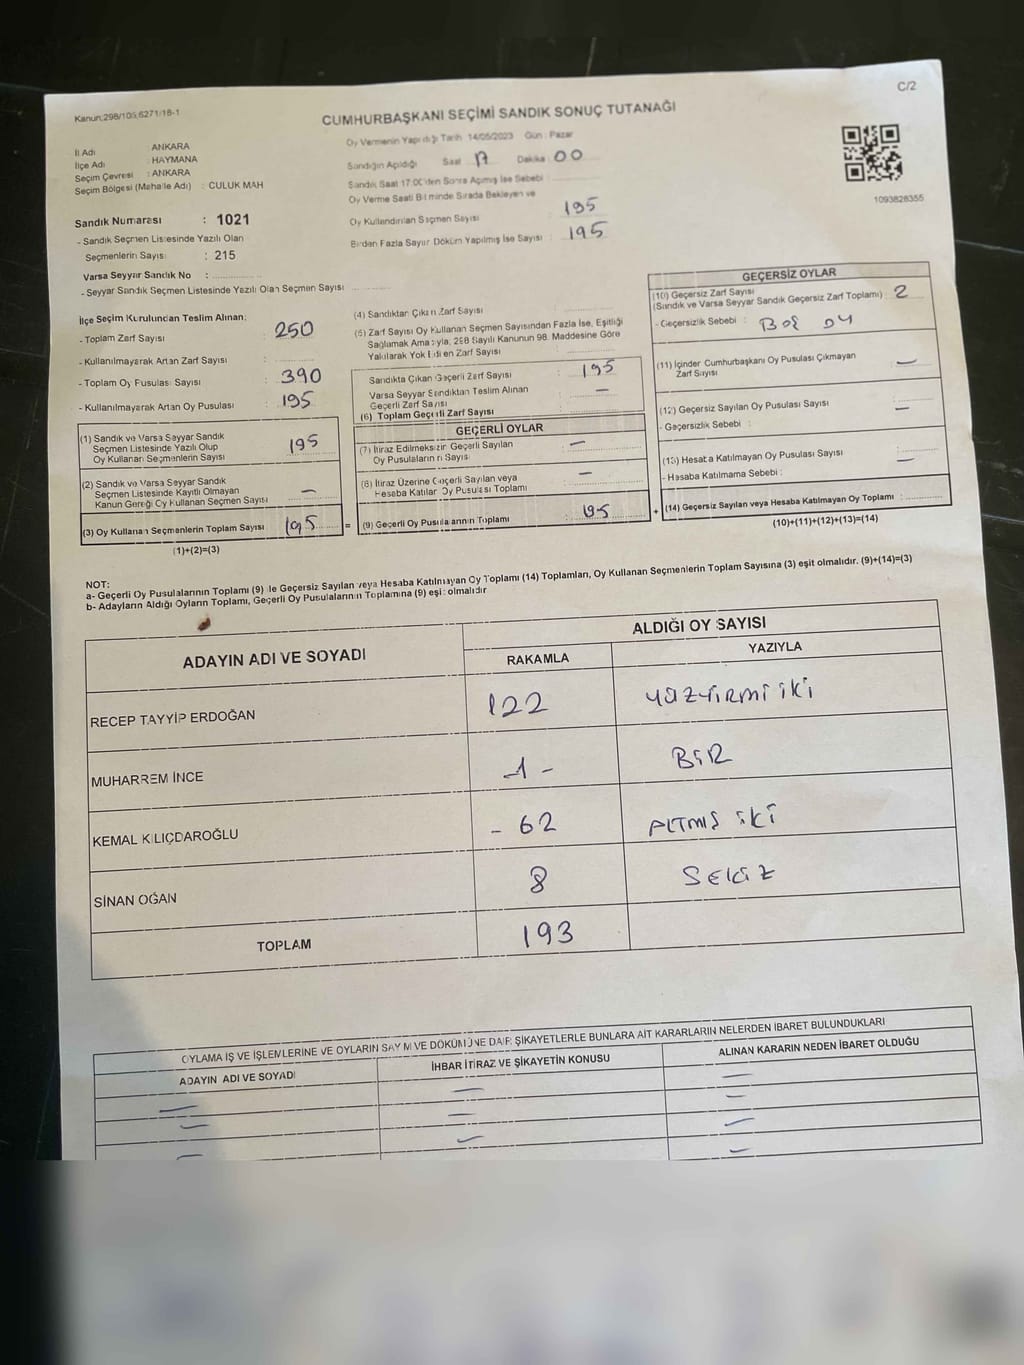 C/2
Kanun:298/105,6271/18-1
CUMHURBAŞKANI SEÇİMİ SANDIK SONUÇ TUTANAĞI
Oy Vermenin Yapıldığı Tarih 14/05/2023 Gün : Pazar
İl Adı : ANKARA
İlçe Adı : HAYMANA
Seçim Çevresi : ANKARA
Seçim Bölgesi (Mahalle Adı) : CULUK MAH
Sandığın Açıldığı Saat 17 Dakika : 00
Sandık Saat 17:00'den Sonra Açılmış İse Sebebi :
Oy Verme Saati Bitiminde Sırada Bekleyen ve
Oy Kullandırılan Seçmen Sayısı : 195
Birden Fazla Sayım Döküm Yapılmış İse Sayısı : 195
1093828355
Sandık Numarası : 1021
- Sandık Seçmen Listesinde Yazılı Olan
Seçmenlerin Sayısı : 215
Varsa Seyyar Sandık No :
- Seyyar Sandık Seçmen Listesinde Yazılı Olan Seçmen Sayısı
İlçe Seçim Kurulundan Teslim Alınan;
- Toplam Zarf Sayısı : 250
- Kullanılmayarak Artan Zarf Sayısı :
- Toplam Oy Pusulası Sayısı : 390
- Kullanılmayarak Artan Oy Pusulası : 195
(1) Sandık ve Varsa Seyyar Sandık
Seçmen Listesinde Yazılı Olup
Oy Kullanan Seçmenlerin Sayısı 195
(2) Sandık ve Varsa Seyyar Sandık
Seçmen Listesinde Kayıtlı Olmayan
Kanun Gereği Oy Kullanan Seçmen Sayısı : —
(3) Oy Kullanan Seçmenlerin Toplam Sayısı : 195 =
(1)+(2)=(3)
(4) Sandıktan Çıkan Zarf Sayısı :
(5) Zarf Sayısı Oy Kullanan Seçmen Sayısından Fazla İse, Eşitliği
Sağlamak Amacıyla, 298 Sayılı Kanunun 98. Maddesine Göre
Yakılarak Yok Edilen Zarf Sayısı :
Sandıkta Çıkan Geçerli Zarf Sayısı : 195
Varsa Seyyar Sandıktan Teslim Alınan
Geçerli Zarf Sayısı : —
(6) Toplam Geçerli Zarf Sayısı :
GEÇERLİ OYLAR
(7) İtiraz Edilmeksizin Geçerli Sayılan
Oy Pusulalarının Sayısı : —
(8) İtiraz Üzerine Geçerli Sayılan veya
Hesaba Katılan Oy Pusulası Toplamı : —
(9) Geçerli Oy Pusulalarının Toplamı : 195 +
GEÇERSİZ OYLAR
(10) Geçersiz Zarf Sayısı
(Sandık ve Varsa Seyyar Sandık Geçersiz Zarf Toplamı) : 2
- Geçersizlik Sebebi : Boş oy
(11) İçinder Cumhurbaşkanı Oy Pusulası Çıkmayan
Zarf Sayısı : —
(12) Geçersiz Sayılan Oy Pusulası Sayısı : —
- Geçersizlik Sebebi :
(13) Hesaba Katılmayan Oy Pusulası Sayısı : —
- Hasaba Katılmama Sebebi :
(14) Geçersiz Sayılan veya Hesaba Katılmayan Oy Toplamı :
(10)+(11)+(12)+(13)=(14)
NOT:
a- Geçerli Oy Pusulalarının Toplamı (9) ile Geçersiz Sayılan veya Hesaba Katılmayan Oy Toplamı (14) Toplamları, Oy Kullanan Seçmenlerin Toplam Sayısına (3) eşit olmalıdır. (9)+(14)=(3)
b- Adayların Aldığı Oyların Toplamı, Geçerli Oy Pusulalarının Toplamına (9) eşit olmalıdır
ADAYIN ADI VE SOYADI
ALDIĞI OY SAYISI
RAKAMLA YAZIYLA
RECEP TAYYİP ERDOĞAN 122 yüzyirmi iki
MUHARREM İNCE -1- BİR
KEMAL KILIÇDAROĞLU - 62 ALTMIŞ iki
SİNAN OĞAN 8 Sekiz
TOPLAM 193
OYLAMA İŞ VE İŞLEMLERİNE VE OYLARIN SAYIM VE DÖKÜMÜNE DAİR ŞİKAYETLERLE BUNLARA AİT KARARLARIN NELERDEN İBARET BULUNDUKLARI
ADAYIN ADI VE SOYADI İHBAR İTİRAZ VE ŞİKAYETİN KONUSU ALINAN KARARIN NEDEN İBARET OLDUĞU